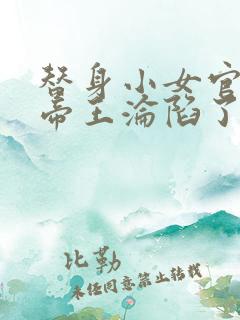 替身小女官
帝王沦陷了
比勒
未经同意禁止转载